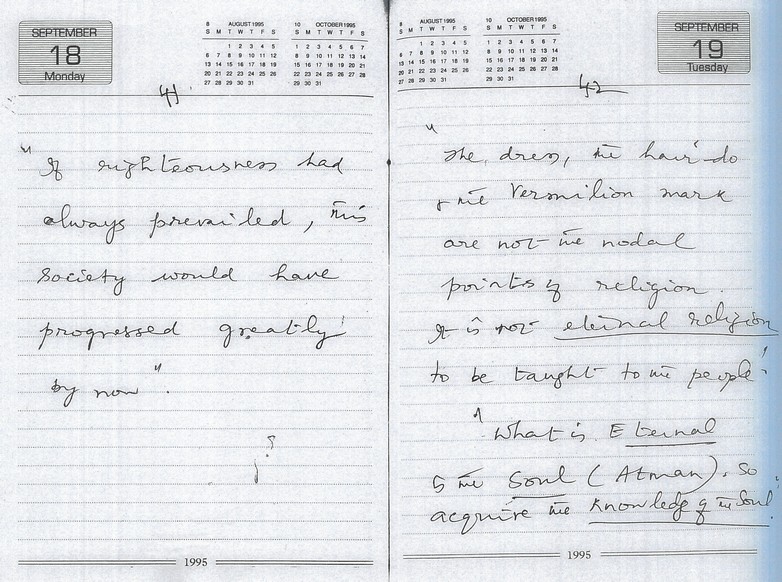 SEPTEMBER
18
Monday
8 AUGUST 1995
S M T W T F S
1 2 3 4 5
6 7 8 9 10 11 12
13 14 15 16 17 18 19
20 21 22 23 24 25 26
27 28 29 30 31
10 OCTOBER 1995
S M T W T F S
1 2 3 4 5 6 7
8 9 10 11 12 13 14
15 16 17 18 19 20 21
22 23 24 25 26 27 28
29 30 31
41
"If righteousness had
always prevailed, this
society would have
progressed greatly
by now".
1995
8 AUGUST 1995
S M T W T F S
1 2 3 4 5
6 7 8 9 10 11 12
13 14 15 16 17 18 19
20 21 22 23 24 25 26
27 28 29 30 31
10 OCTOBER 1995
S M T W T F S
1 2 3 4 5 6 7
8 9 10 11 12 13 14
15 16 17 18 19 20 21
22 23 24 25 26 27 28
29 30 31
SEPTEMBER
19
Tuesday
42
"The dress, the hair-do
& the Vermilion mark
are not the nodal
points of religion.
It is not eternal religion
to be taught to the people'
'What is Eternal
is the Soul (Atman). So
acquire the knowledg of the Soul'
1995